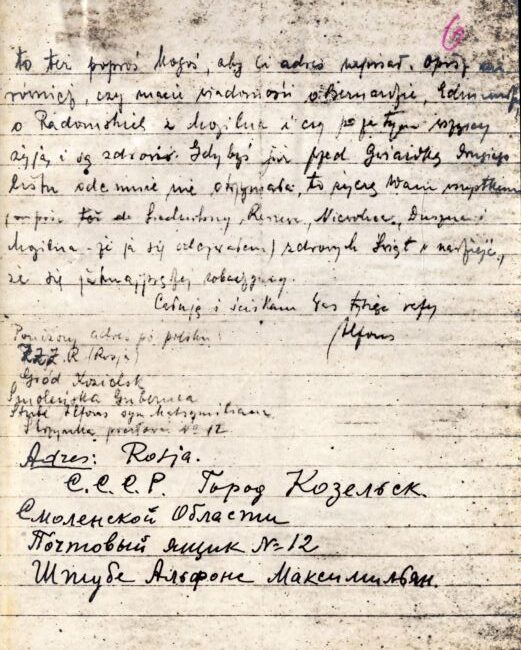 6
to też poproś kogoś, aby Ci adres napisał. Opisz
również, czy macie wiadomości o Bernardzie,
o Radomskich z Mogilna i czy poza tym wszyscy
żyją i są zdrowi. Gdybyś już przed Gwiazdką drugiego
listu ode mnie nie otrzymała, to życzę Wam wszystkim
toż do Niewolna, i
Mogilna - że ja się odezwałem) zdrowych Świąt w nadziei,
że się jaknajprędzej zobaczymy.
Całuję i ściskam Was tysiąc razy
Alfons
Poniższy adres po polsku:
Z.Z.Z.R (Rosja)
Gród Kozielsk
Smoleńska Gubernia
Stube Alfons syn Maksymiliana
Skrzynka pocztowa № 12
Adres: Rosja.
С.С.С.Р. Город Козельск.
Смоленской Области
Почтовый ящик № 12
Штубе Альфонс Максимильян.